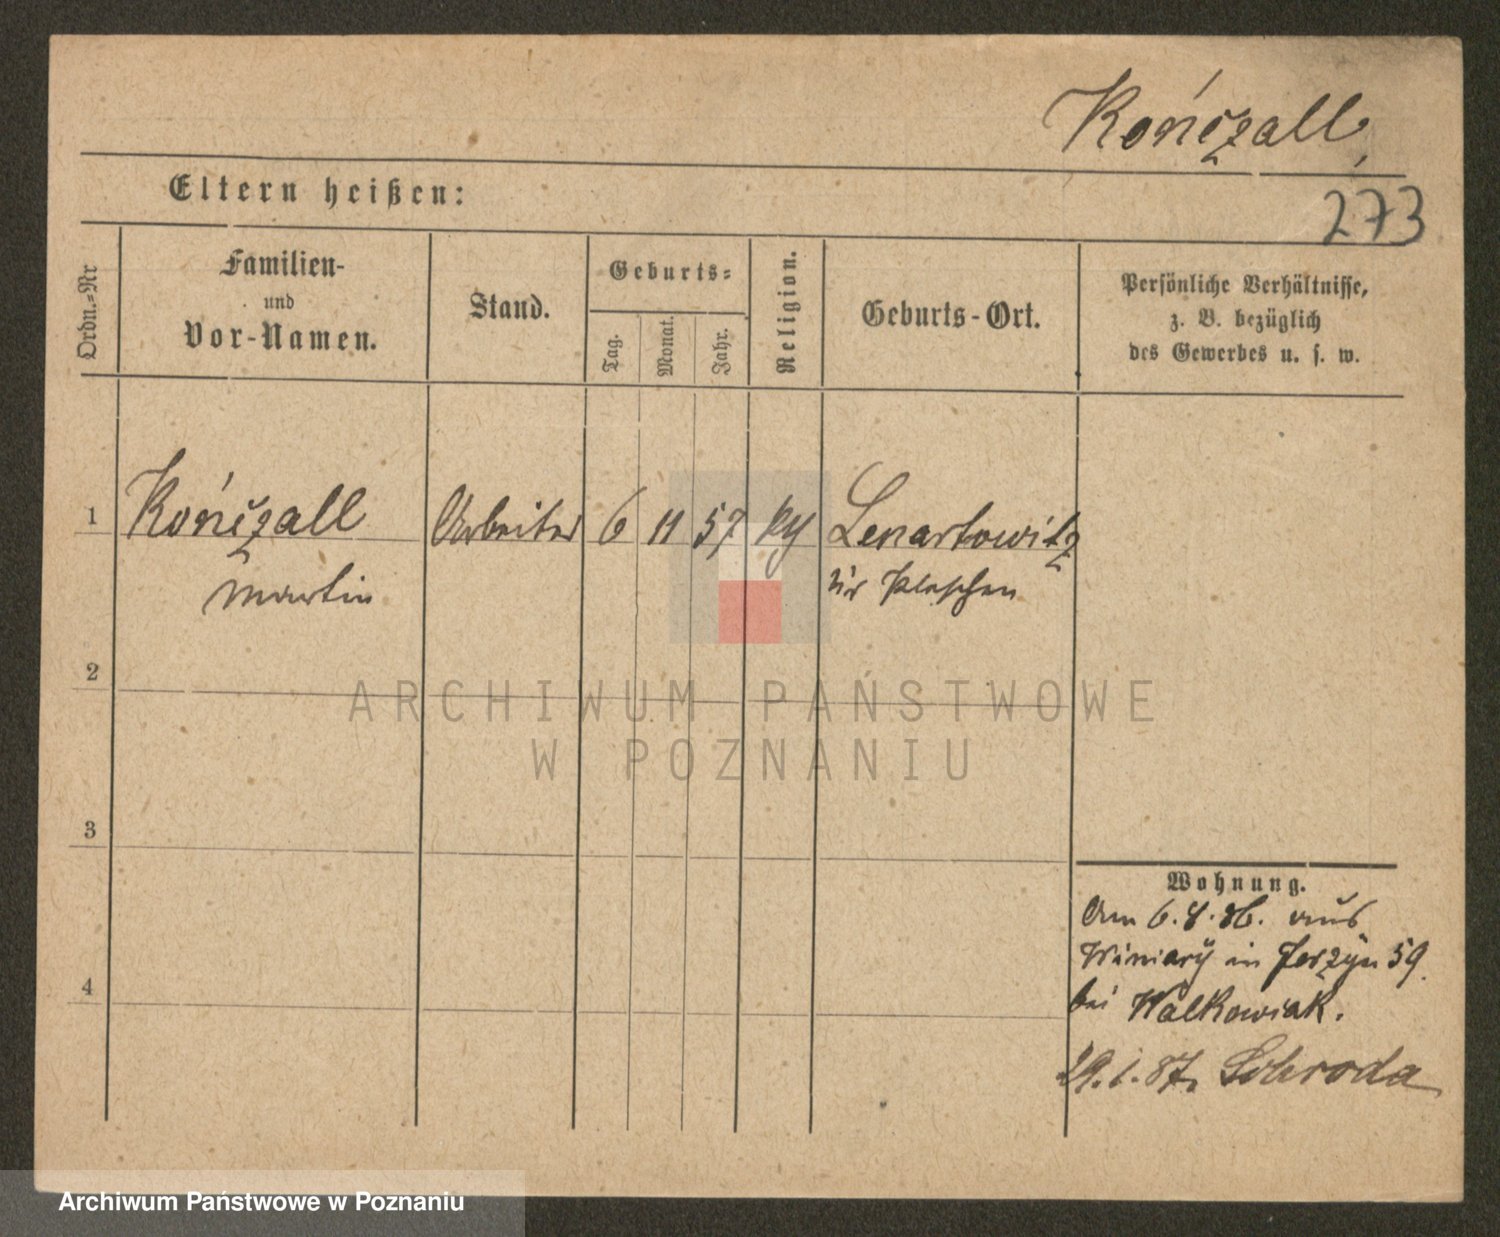 Kończall
Eltern heißen:
273
Ordn.=Nr
Familien-
und
Vor-Namen.
Stand.
Geburts=
Tag.
Monat.
Jahr.
Religion.
Geburts-Ort.
Persönliche Verhältnisse,
z. B. bezüglich
des Gewerbes u. s. w.
1 Kończall Arbeiter 6 11 57 Lenartowitz
Martin Pleschen
2
ARCHIWUM PAŃSTWOWE
W POZNANIU
3
Wohnung.
Am 6. 8. 86. aus
Winiary in Jerzyn 59.
bei Walkowiak.
4
29.1.87. Schroda
Archiwum Państwowe w Poznaniu